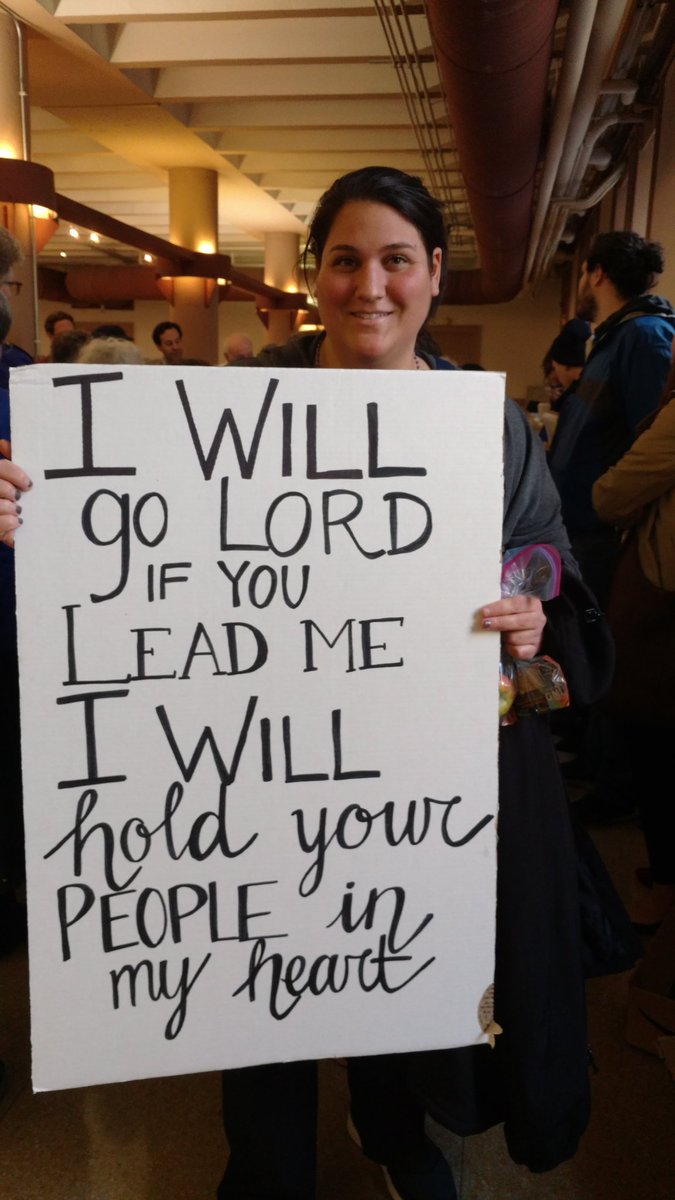 I WILL
go LORD
IF YOU
LEAD ME
I WILL
hold your
PEOPLE in
my heart